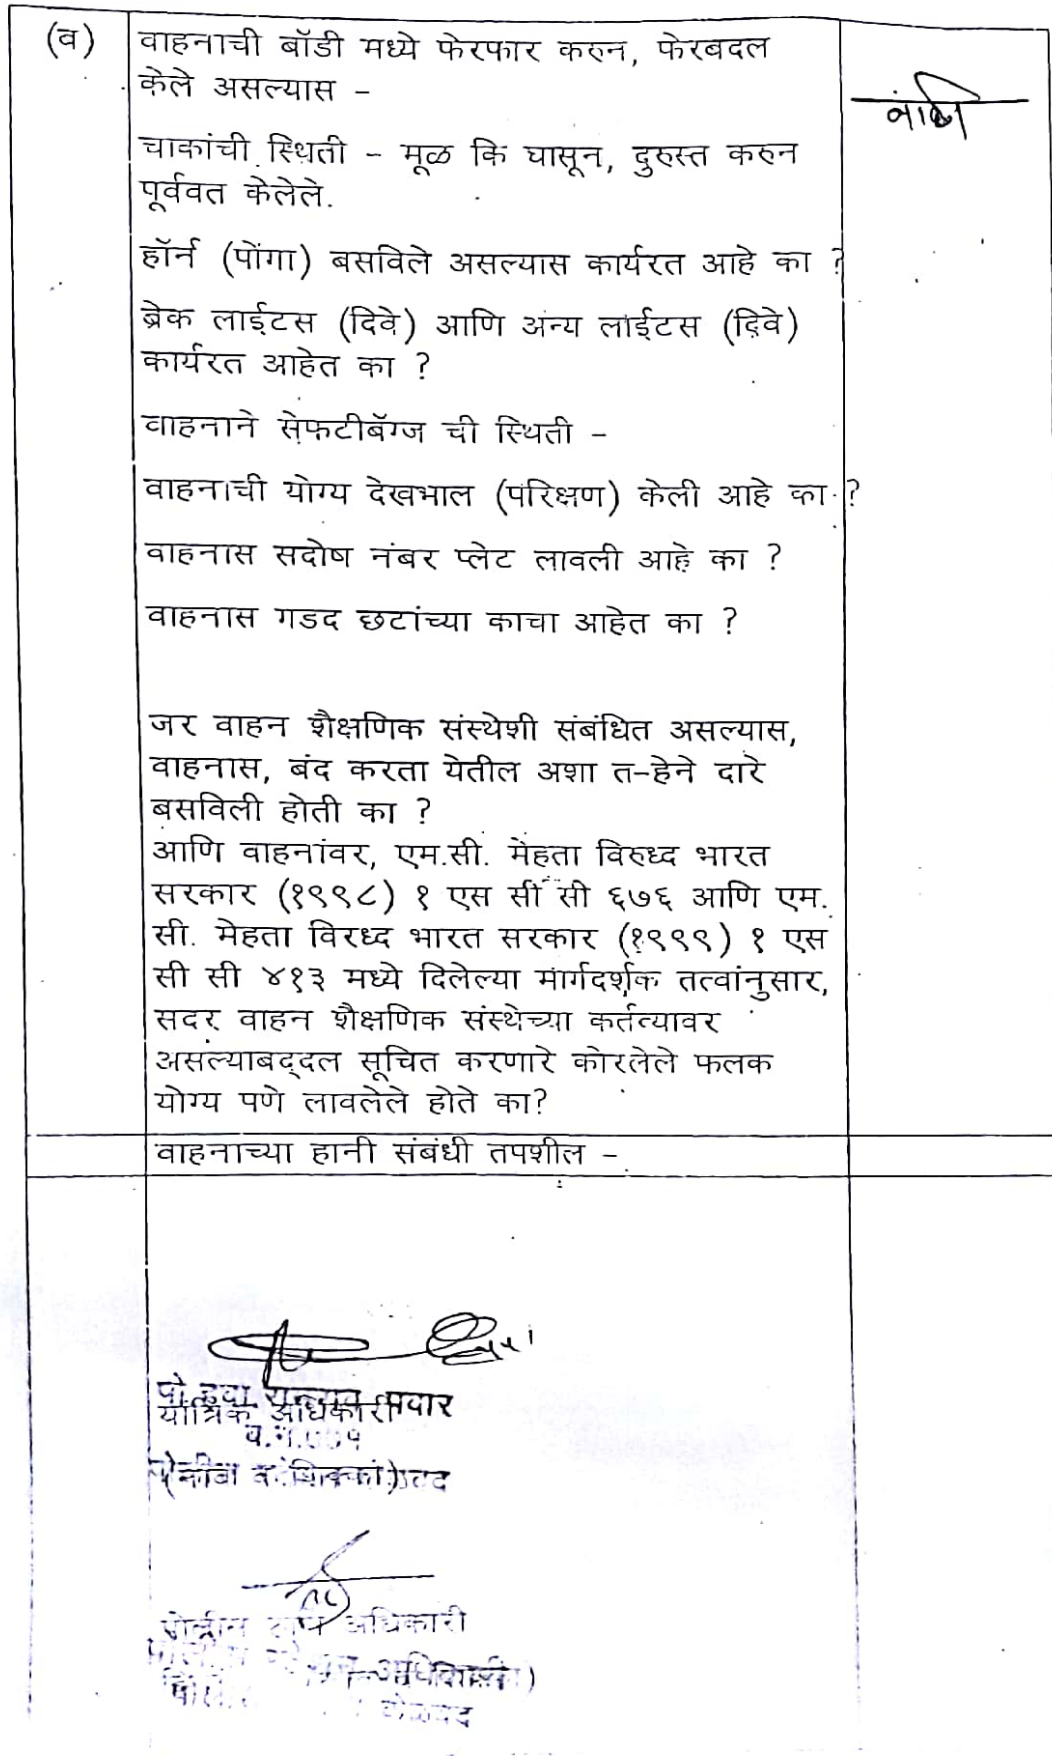 (व) वाहनाची बॉडी मध्ये फेरफार करुन, फेरबदल
केले असल्यास –
नाही
चाकांची स्थिती – मूळ कि घासून, दुरुस्त करुन
पूर्ववत केलेले.
हॉर्न (पोंगा) बसविले असल्यास कार्यरत आहे का ?
ब्रेक लाईटस (दिवे) आणि अन्य लाईटस (दिवे)
कार्यरत आहेत का ?
वाहनाने सेफटीबॅग्ज ची स्थिती –
वाहनाची योग्य देखभाल (परिक्षण) केली आहे का ?
वाहनास सदोष नंबर प्लेट लावली आहे का ?
वाहनास गडद छटांच्या काचा आहेत का ?
जर वाहन शैक्षणिक संस्थेशी संबंधित असल्यास,
वाहनास, बंद करता येतील अशा त-हेने दारे
बसविली होती का ?
आणि वाहनांवर, एम.सी. मेहता विरुध्द भारत
सरकार (१९९८) १ एस सी सी ६७६ आणि एम.
सी. मेहता विरध्द भारत सरकार (१९९९) १ एस
सी सी ४१३ मध्ये दिलेल्या मार्गदर्शक तत्वांनुसार,
सदर वाहन शैक्षणिक संस्थेच्या कर्तव्यावर
असल्याबद्दल सूचित करणारे कोरलेले फलक
योग्य पणे लावलेले होते का?
वाहनाच्या हानी संबंधी तपशील –
पवार
यांत्रिक अधिकारी
अधिकारी